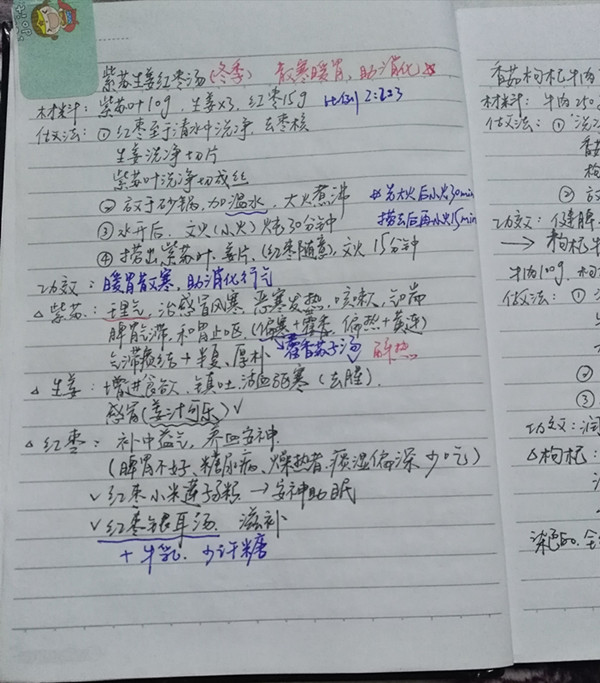 紫苏生姜红枣汤(冬季) 散寒暖胃、助消化
材料: 紫苏叶10g, 生姜×3, 红枣15g 比例2:2:3
做法: ①红枣至清水中洗净, 去枣核
生姜洗净切片
紫苏叶洗净切成丝
②放于砂锅,加温水,大火煮沸 先大火后小火30min
③水开后, 文火(小火)炖30分钟 捞去后再小火15min
④捞出紫苏叶、姜片,(红枣随意),文火15分钟
功效: 暖胃散寒,助消化行气
△紫苏: 理气,治感冒风寒 恶寒发热、咳嗽、气喘
脾胃气滞,和胃止呕(偏寒+藿香,偏热+黄连)
气滞痰结+半夏、厚朴 藿香苏子汤
△生姜: 增进食欲、镇吐、活血驱寒(去腥).
感冒(姜汁可乐)√
△红枣: 补中益气,养血安神.
(脾胃不好、糖尿病、燥热者、痰湿偏深 少吃)
√红枣小米莲子粥 → 安神助眠
√红枣银耳汤. 滋补
+牛乳. 少许糖
香菇枸杞牛肉
材料: 牛肉250
做法: ①洗
香菇
枸
②放
功效: 健脾、
→ 枸杞牛
牛肉100g, 枸
做法: ①
②
③
功效: 润
△枸杞: